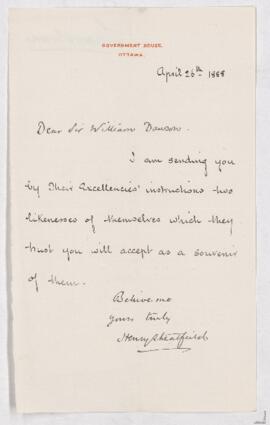 GOVERNMENT HOUSE,
OTTAWA.
April 26th 1888
Dear Sir William Dawson.
I am sending you
by Their Excellencies' instructions two
likenesses of themselves which they
trust you will accept as a souvenir
of them.
Believe me
yours truly
Henry Streatfeild